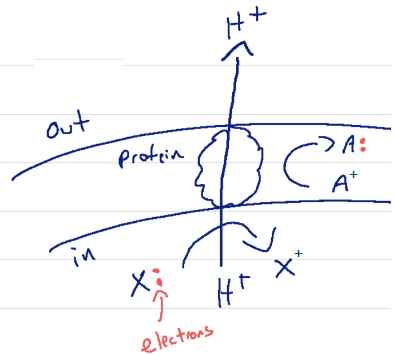 H+
out
protein
A:
A+
in
X:
H+
X+
electrons